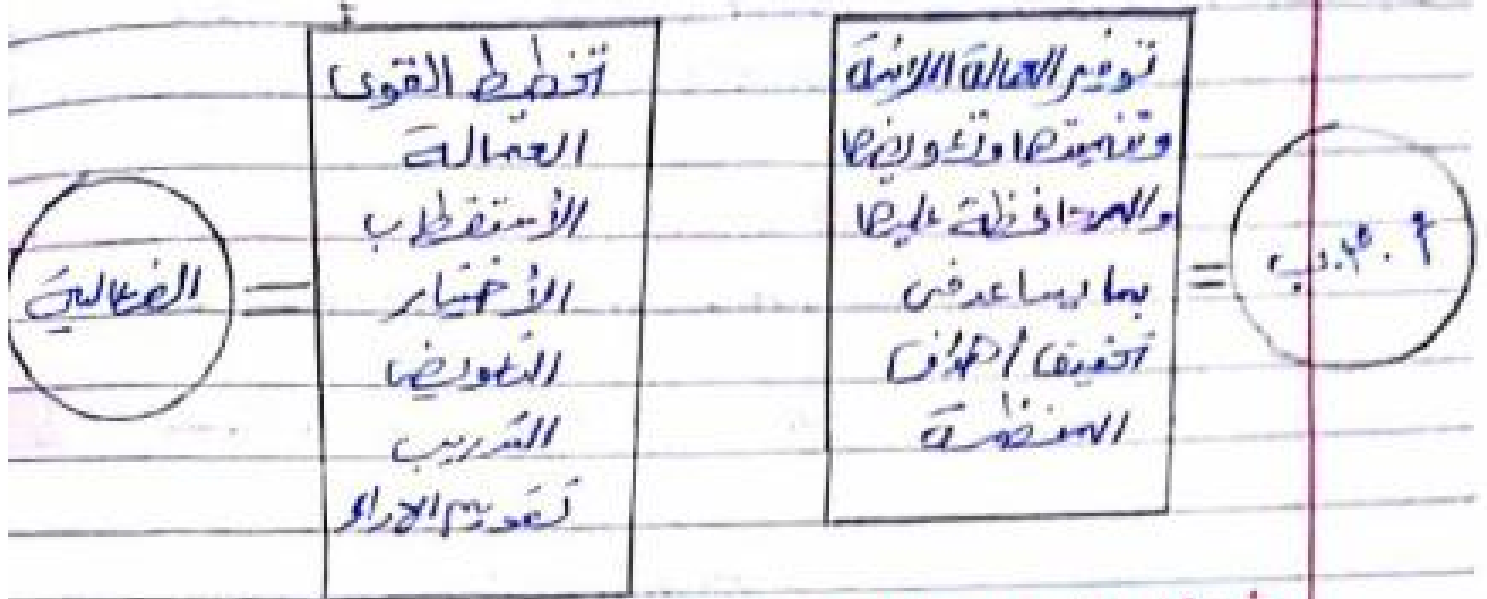 توفير العمالة اللازمة
وتنميتها وتعويضها
والمحافظة عليها
بما يساعد في
تحقيق أهداف
المنظمة
=
تخطيط القوى
العمالة
الأستقطاب
الأختيار
التعويض
التدريب
تقويم الاداء
=
الفعالية